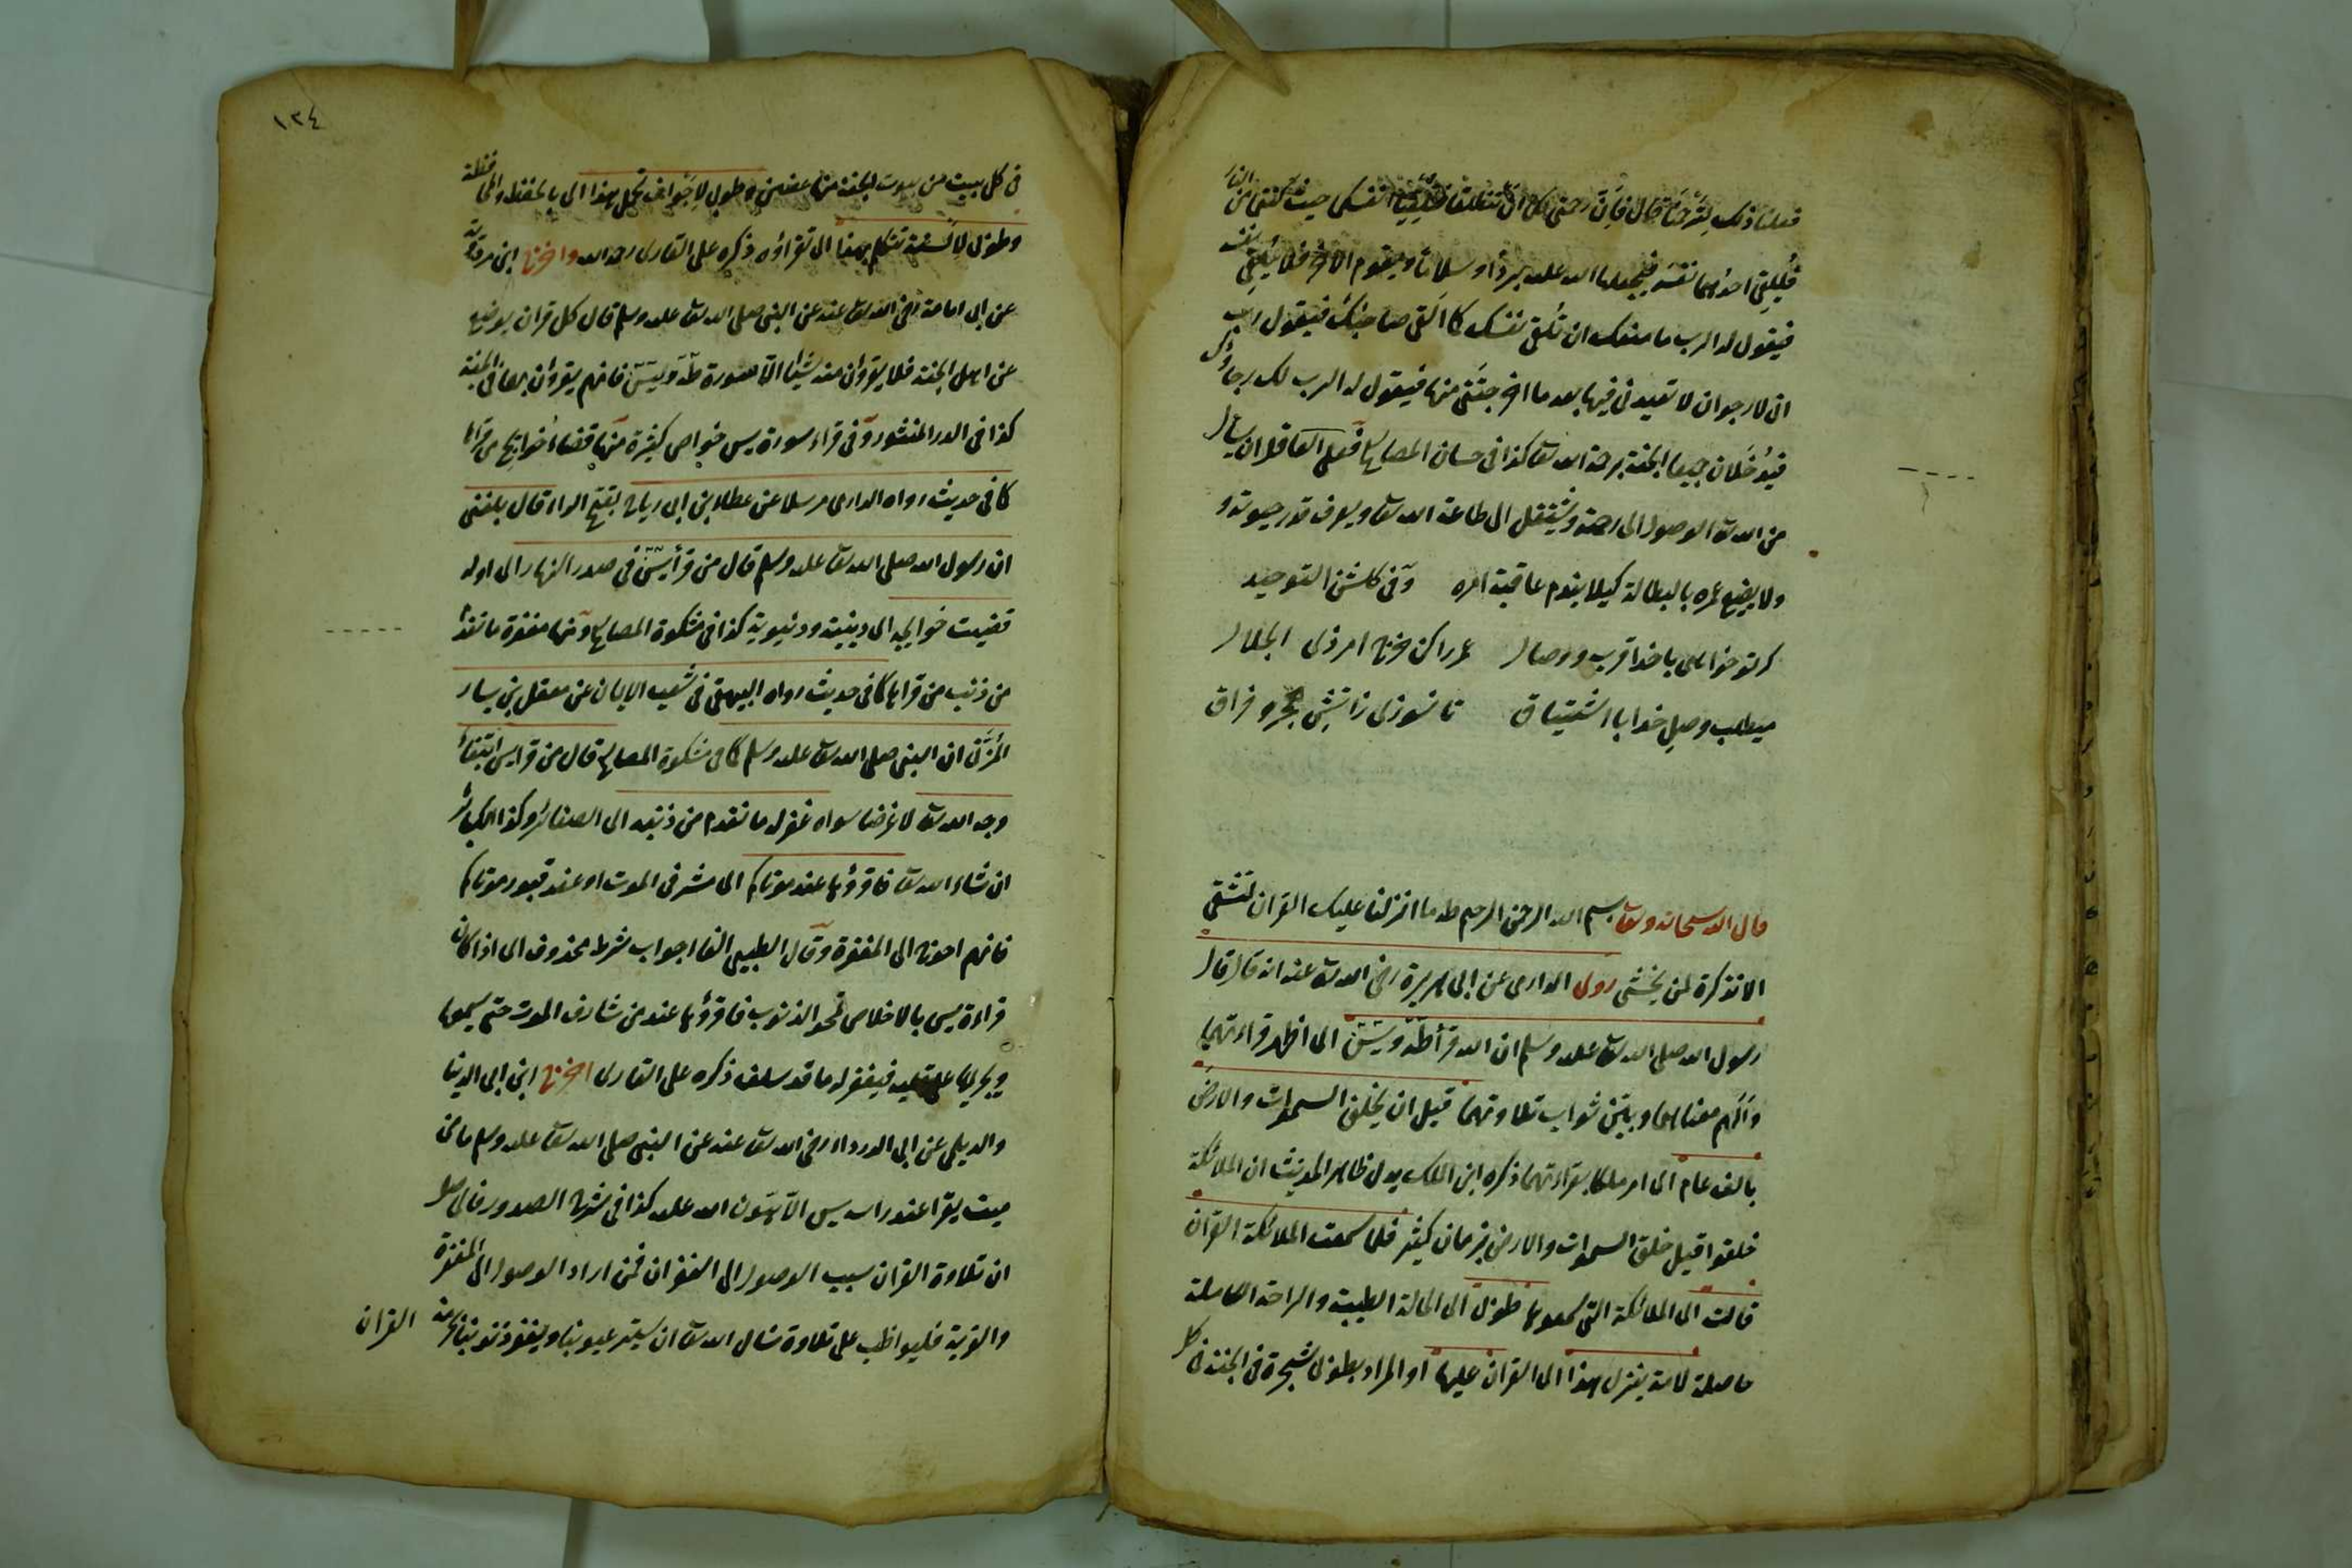 فعلنا ذلك لترحمنا قال فان رحمتي لكما ان تنطلقا فتلقيا انفسكما حيث كنتما من النار
فيُلقِي احدهما نفسه فيجعلها الله عليه بردًا وسلامًا ويقوم الآخر فلا يُلقي نفسه
فيقول له الرب ما منعك ان تُلقي نفسك كما القى صاحبك فيقول رب
انى لارجو ان لا تعيدنى فيها بعد ما اخرجتني منها فيقول له الرب لك رجاؤك
فيُدخَلان جميعا الجنة برحمة الله تعا كذا فى حسان المصابيح فعلى العاقل ان يسأل
من الله تعا الوصول الى رحمته ويشتغل الى طاعة الله تعا ويعرف قدر حيوته و
ولا يضيع عمره بالبطالة كيلا يندم عاقبة امره وفى كلشن التوحيد
كر تو خواهى با خدا قرب ووصال عمر را كن خرج امر ذى الجلال
ميطلب وصل خدا با اشتياق تا نسوزى ز آتش هجر و فراق
قال الله سبحانه وتعا بسم الله الرحمن الرحيم طه ما انزلنا عليك القران لتشقى
الا تذكرة لمن يخشى روى الدارمى عن ابى هريرة رضى الله تعا عنه انه قال قال
رسول الله صلى الله تعا عليه وسلم ان الله قرأ طه ويس اى اظهر قراءتهما
وافهم معناهما وبين ثواب تلاوتهما قبل ان يخلق السموات والارض
بالف عام اى امر ملكا بقراءتهما ذكره ابن الملك يدل ظاهر الحديث ان الملائكة
خلقوا قبل خلق السموات والارض بزمان كثير فلما سمعت الملائكة القران
قالت اى الملائكة التى سمعوها طوبى اى الحالة الطيبة والراحة الكاملة
حاصلة لامة ينزل هذا اى القران عليها او المراد بطوبى شجرة فى الجنة فى كل
١٣٤
فى كل بيت من بيوت الجنة منها غصن وطوبى لاجواف تحمل هذا اى بالحفظ والمحافظة
وطوبى لالسنة تتكلم بهذا اى تقراؤه ذكره على القارى رحمه الله واخرج ابن مردويه
عن ابى امامة رضى الله تعا عنه عن النبى صلى الله تعا عليه وسلم قال كل قران يوضع
عن اهل الجنة فلا يقرؤن منه شيئا الا سورة طه ويس فانهم يقرؤن بهما فى الجنة
كذا فى الدر المنثور وفى قراءة سورة يس خواص كثيرة منها قضاء حوايج من قراها
كما فى حديث رواه الدارمى مرسلا عن عطاء بن ابى رباح بفتح الراء قال بلغنى
ان رسول الله صلى الله تعا عليه وسلم قال من قرأ يس فى صدر النهار اى اوله
قضيت حوايجه اى دينية ودنيوية كذا فى مشكوة المصابيح ومنها مغفرة ما تقدم
من ذنب من قراها كما فى حديث رواه البيهقى فى شعب الايمان عن معقل بن يسار
المُزَنى ان النبى صلى الله تعا عليه وسلم كما فى مشكوة المصابيح قال من قرا يس ابتغاء
وجه الله تعا لا غرضا سواه غفر له ما تقدم من ذنبه اى الصغائر وكذا الكبائر
ان شاء الله تعا فاقرؤها عند موتاكم اى مشرفى الموت او عند قبور موتاكم
فانهم احوج الى المغفرة وقال الطيبى الفا اجواب شرط محذوف اى اذا كان
قراءة يس بالاخلاص تمحو الذنوب فاقرؤها عند من شارف الموت حتى يسمعها
ويجريها على قلبه فيغفر له ما قد سلف ذكره على القارى اخرج ابن ابى الدنيا
والديلمى عن ابى الدرداء رضى الله تعا عنه عن النبى صلى الله تعا عليه وسلم ما من
ميت يقرا عند راسه يس الا هَوّن الله عليه كذا فى شرح الصدور
ان تلاوة القران سبب الوصول الى الغفران فمن اراد الوصول الى المغفرة
والقربة فليواظب على تلاوة نسال الله تعا ان يستر عيوبنا ويغفر ذنوبنا بحرمة القران